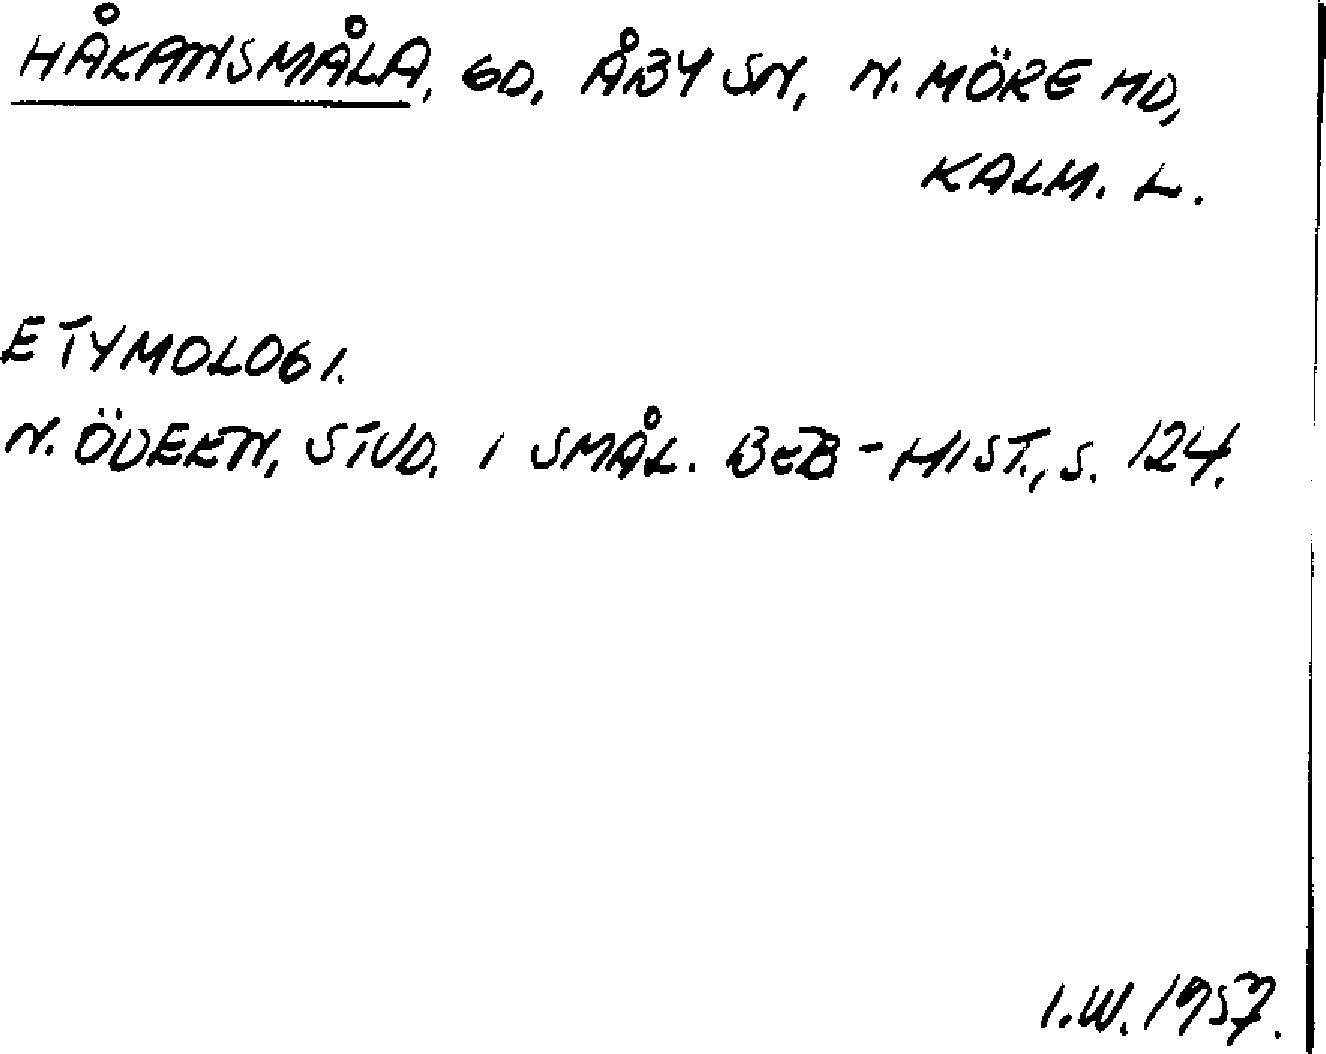 HÅKANSMÅLA, GD, ÅBY SN, N. MÖRE HD,
KALM. L.
ETYMOLOGI.
N. ÖDEEN, STUD. I SMÅL. BEB-HIST., S. 124.
I.W. 1957.